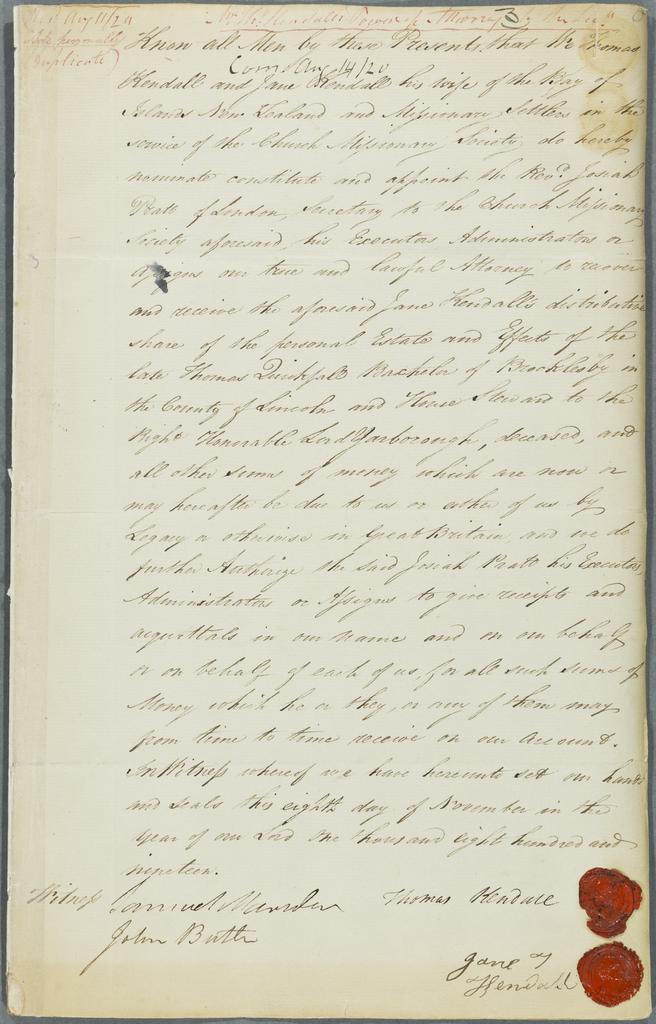 Recd Aug 11/20
Mr. Kendall's Power of Attorney
Duplicate
Know all Men by these Presents, that We Thomas
Com Aug 14/20
Kendall and Jane Kendall his wife of the Bay of
Islands New Zealand and Missionary Settlers in the
service of the Church Missionary Society do hereby
nominate constitute and appoint the Revd. Josiah
Pratt of London, Secretary to the Church Missionary
Society aforesaid, his Executors Administrators or
Assigns our true and lawful Attorney to recover
and receive the aforesaid Jane Kendall's distributive
share of the personal Estate and Effects of the
late Thomas Quickfall Bachelor of Brocklesby in
the County of Lincoln and House Steward to the
Right Honourable Lord Yarborough, deceased, and
all other sums of money which are now or
may hereafter be due to us or either of us by
Legacy or otherwise in Great Britain, and we do
further Authorize the said Josiah Pratt his Executors,
Administrators or Assigns to give receipts and
acquittals in our name and on our behalf
or on behalf of each of us, for all such sums of
Money which he or they, or any of them may
from time to time receive on our account.
In Witness whereof we have hereunto set our hands
and seals this eighth day of November in the
year of our Lord One thousand eight hundred and
nineteen.
Witness Samuel Marsden Thomas Kendall
John Butler
Jane
Kendall